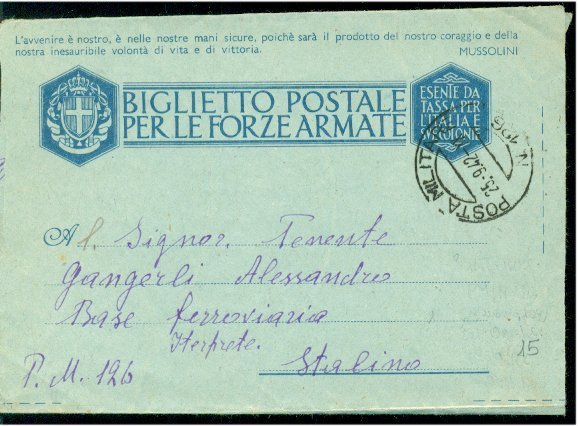 L'avvenire è nostro, è nelle nostre mani sicure, poichè sarà il prodotto del nostro coraggio e della
nostra inesauribile volontà di vita e di vittoria. MUSSOLINI
BIGLIETTO POSTALE
PER LE FORZE ARMATE
ESENTE DA
TASSA PER
L'ITALIA E
SVE COLONIE
POSTA MILITARE N. 126
25-9.42
Al Signor. Tenente
Gangerli Alessandro
Base ferroviaria
Iterprete.
Stalino
P.M. 126
15